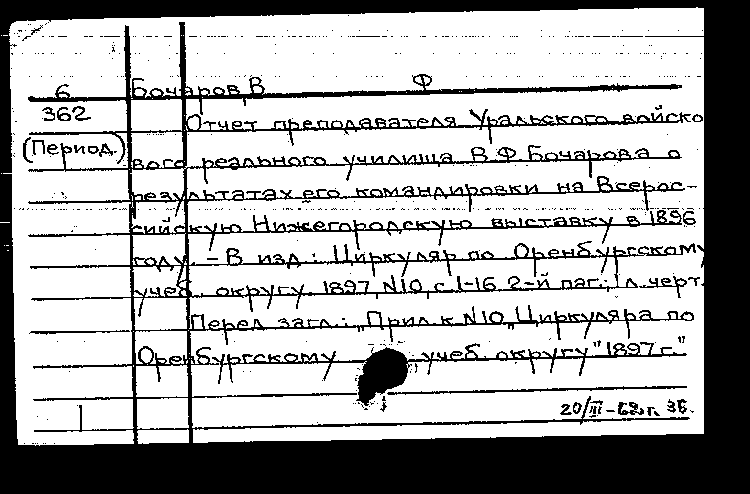 6 Бочаров, В Ф
362 Отчет преподавателя Уральского войско
(Период.) вого реального училища В.Ф. Бочарова о
результатах его командировки на Всерос-
сийскую Нижегородскую выставку в 1896
году. – В изд.: Циркуляр по Оренбургскому
учеб. округу. 1897, N10, с. 1-16 2-й паг.; 1 л. черт.
Перед загл.: „Прил. к N10 „Циркуляра по
Оренбургскому учеб. округу" 1897 г."
20/III-62 г. 36.